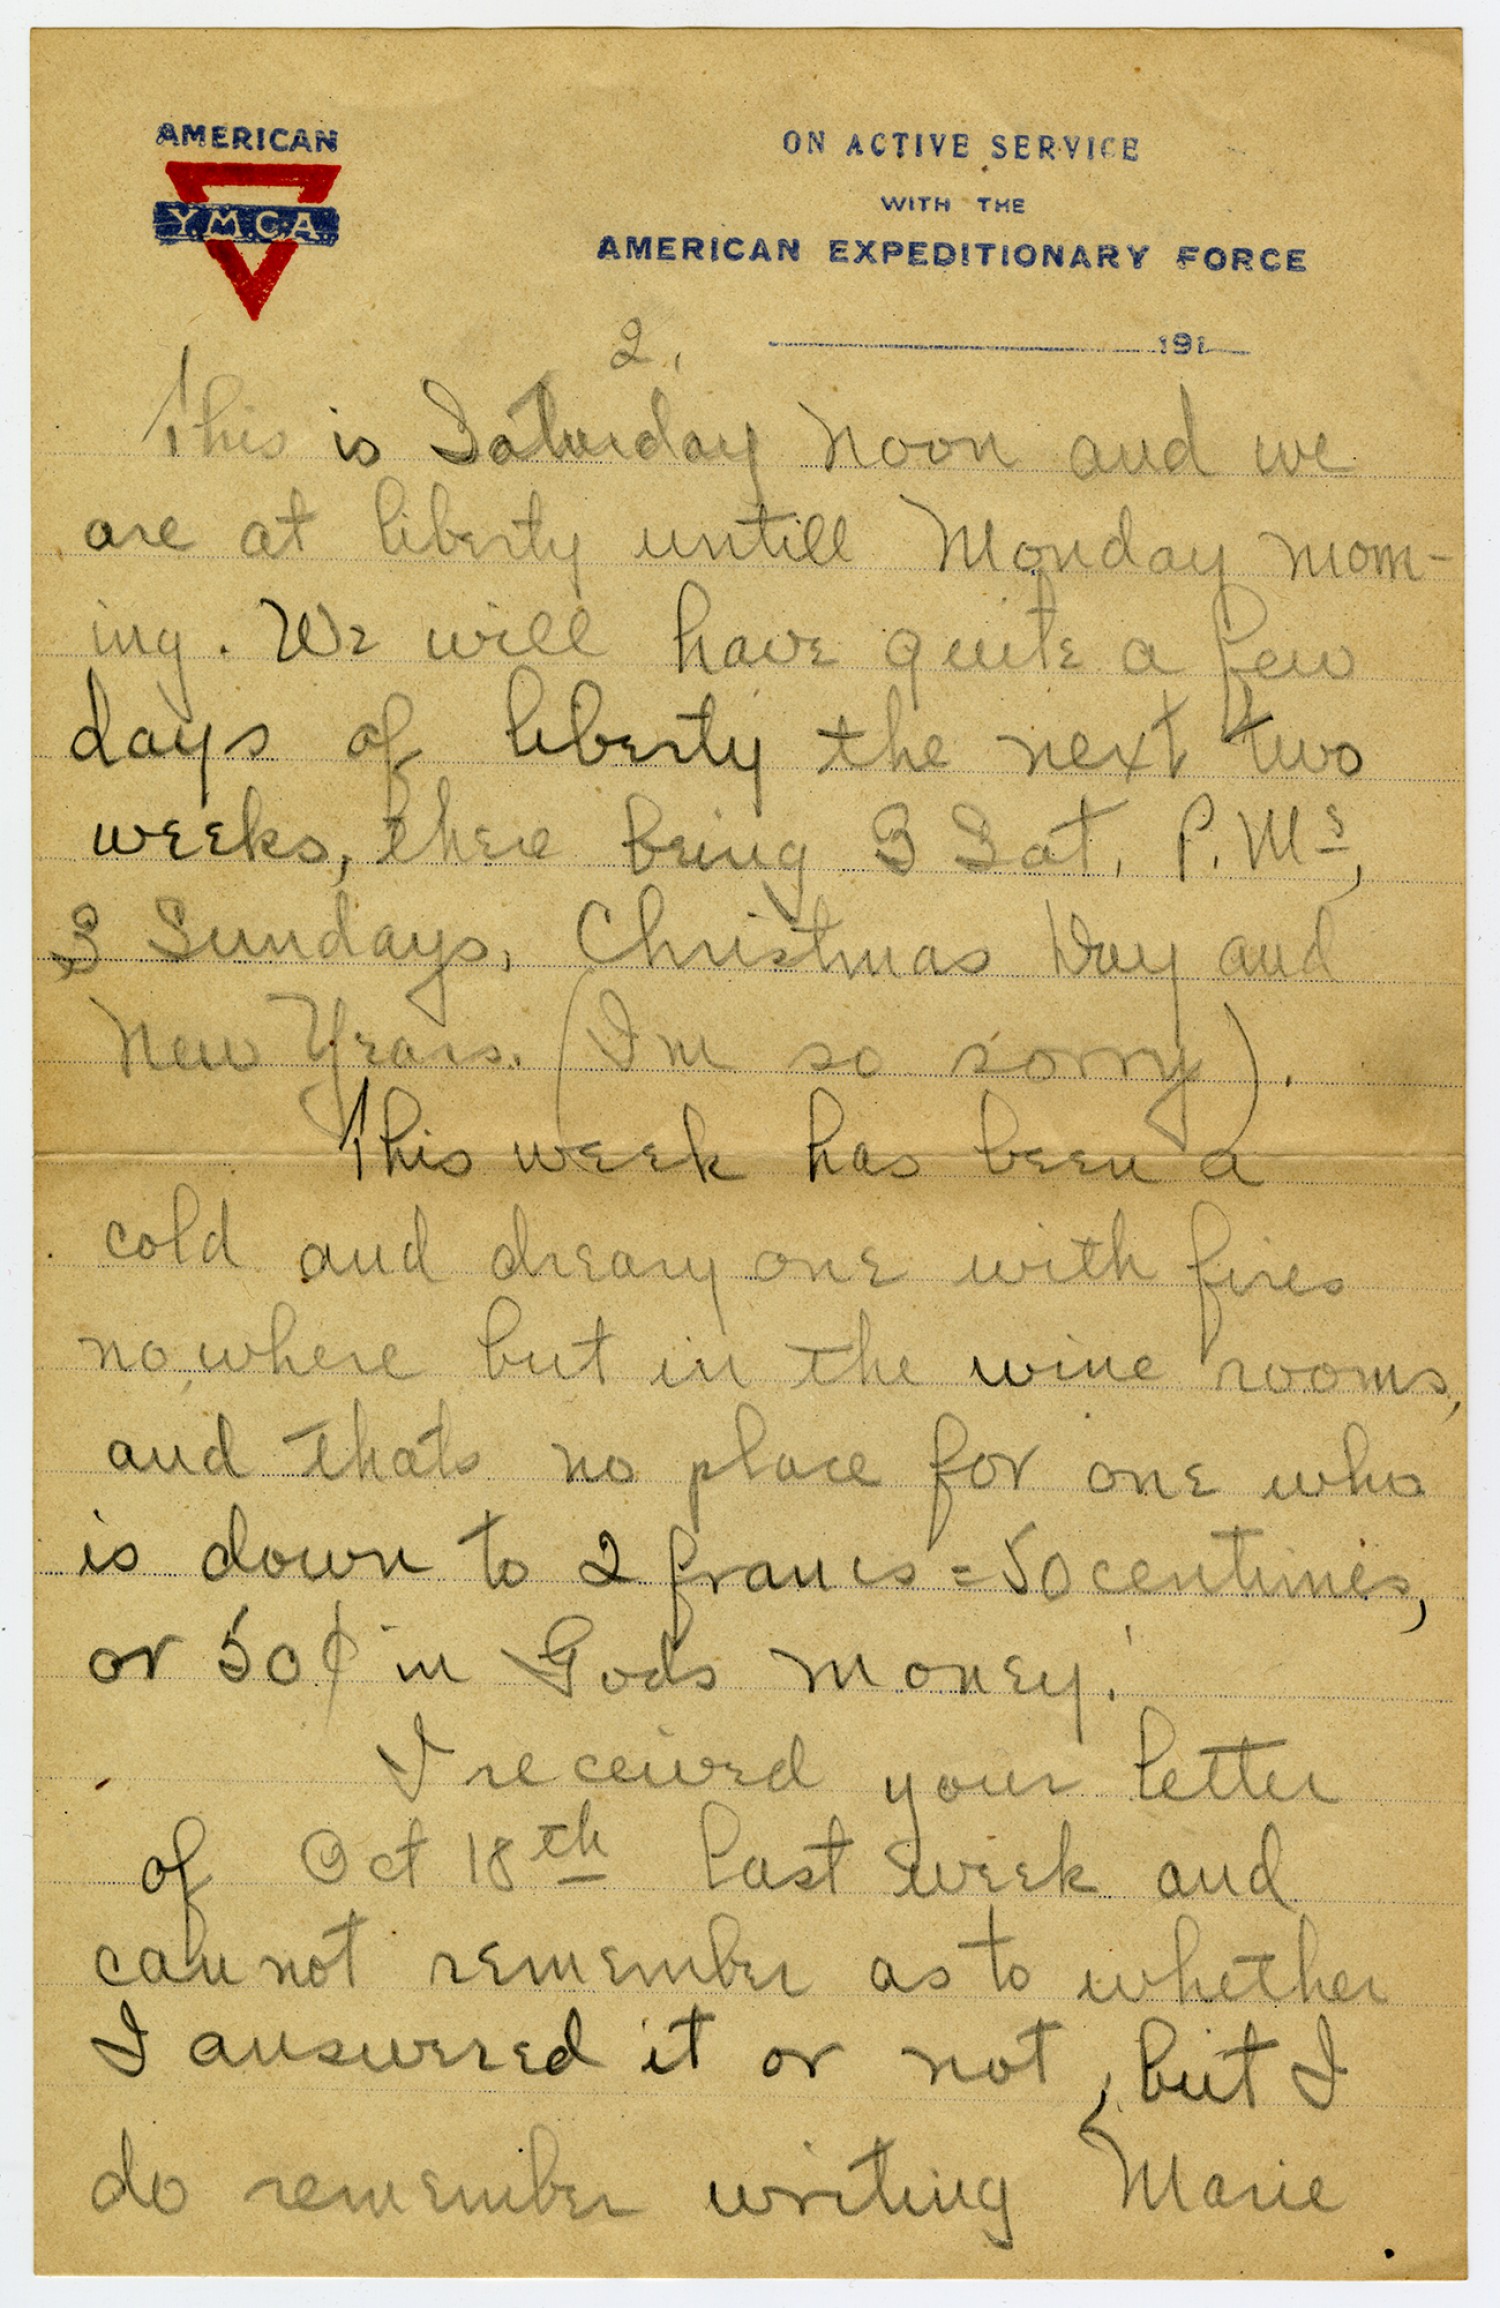 AMERICAN
Y.M.C.A.
ON ACTIVE SERVICE
WITH THE
AMERICAN EXPEDITIONARY FORCE
191
2.
This is Saturday noon and we
are at liberty untill Monday morn-
ing. We will have quite a few
days of liberty the next two
weeks, there being 3 Sat. P.Ms,
3 Sundays, Christmas Day and
New Years. (I'm so sorry).
This week has been a
cold and dreary one with fires
no where but in the wine rooms,
and thats no place for one who
is down to 2 francs = 50 centimes,
or 50¢ in Gods money!
I received your letter
of Oct 18th last week and
can not remember as to whether
I answered it or not, but I
do remember writing Marie